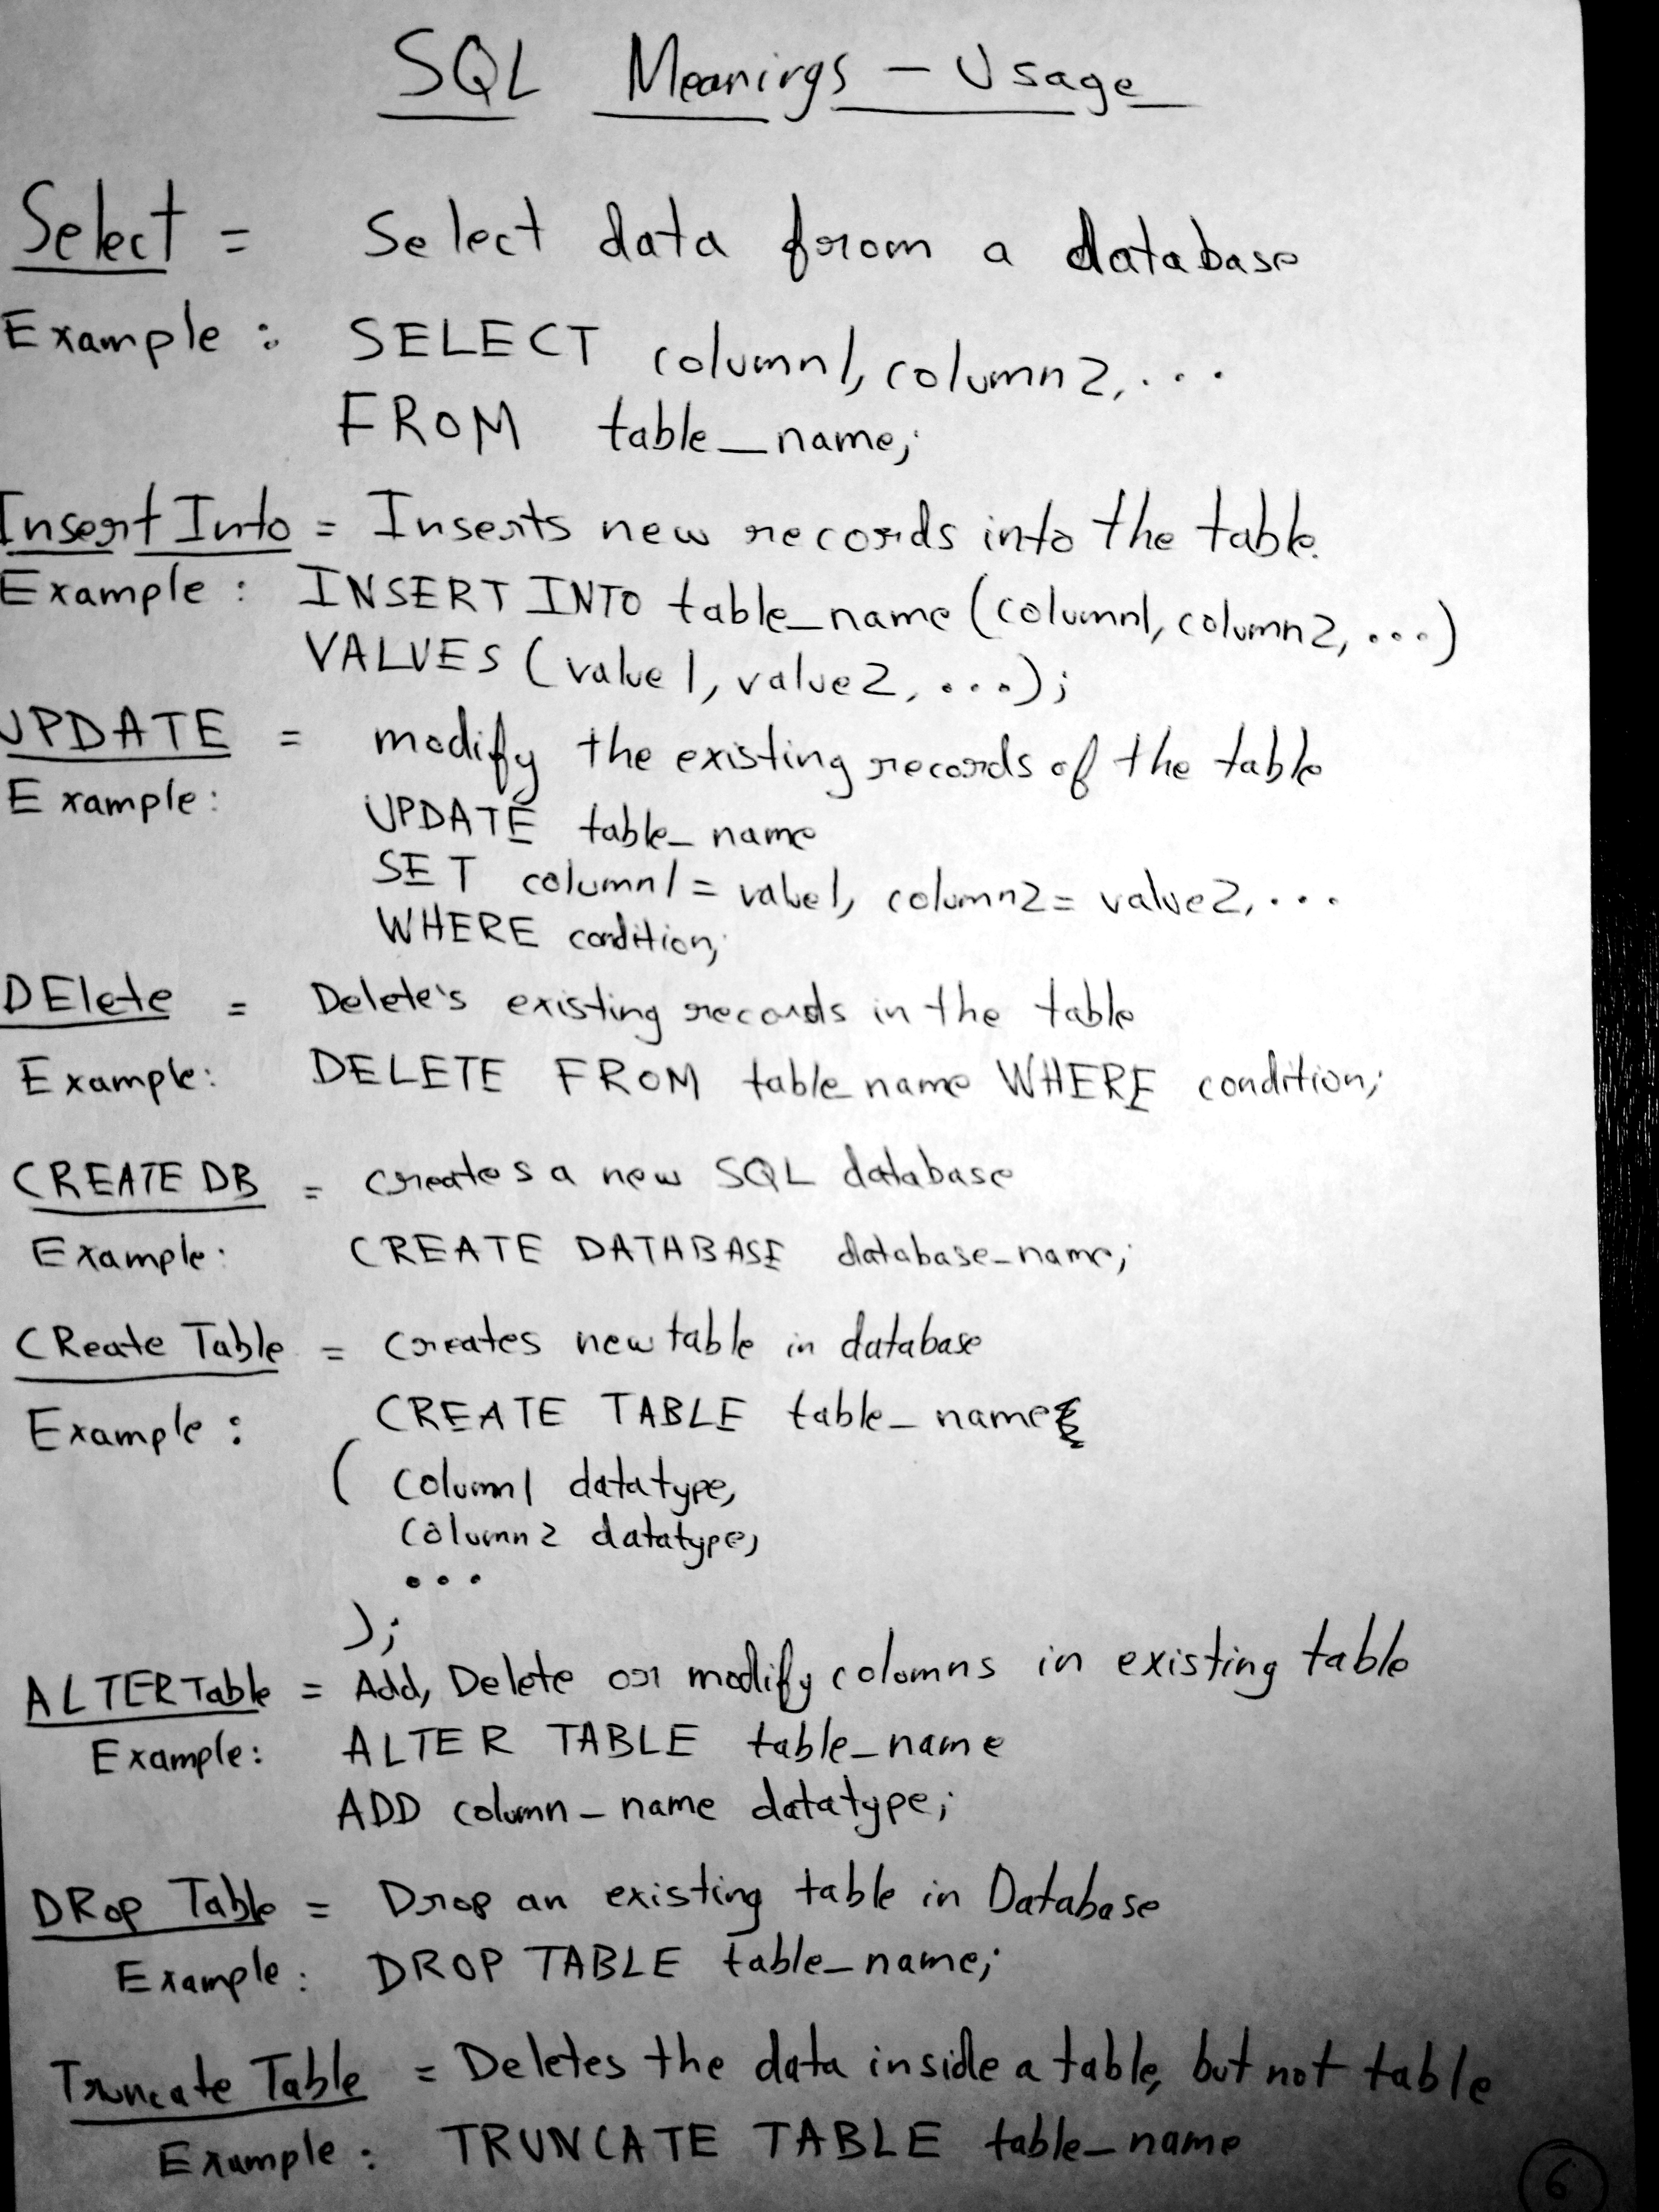 SQL Meanings - Usage
Select = Select data from a database
Example : SELECT column1, column2, ...
FROM table_name;
Insert Into = Inserts new records into the table.
Example : INSERT INTO table_name (column1, column2, ...)
VALUES (value1, value2, ...);
UPDATE = modify the existing records of the table
Example : UPDATE table_name
SET column1 = value1, column2 = value2, ...
WHERE condition;
DElete = Delete's existing records in the table
Example : DELETE FROM table_name WHERE condition;
CREATE DB = creates a new SQL database
Example : CREATE DATABASE database_name;
CReate Table = creates new table in database
Example : CREATE TABLE table_name
( column1 datatype,
column2 datatype,
...
);
ALTER Table = Add, Delete or modify colomns in existing table
Example : ALTER TABLE table_name
ADD column_name datatype;
DRop Table = Drop an existing table in Database
Example : DROP TABLE table_name;
Truncate Table = Deletes the data inside a table, but not table
Example : TRUNCATE TABLE table_name
6